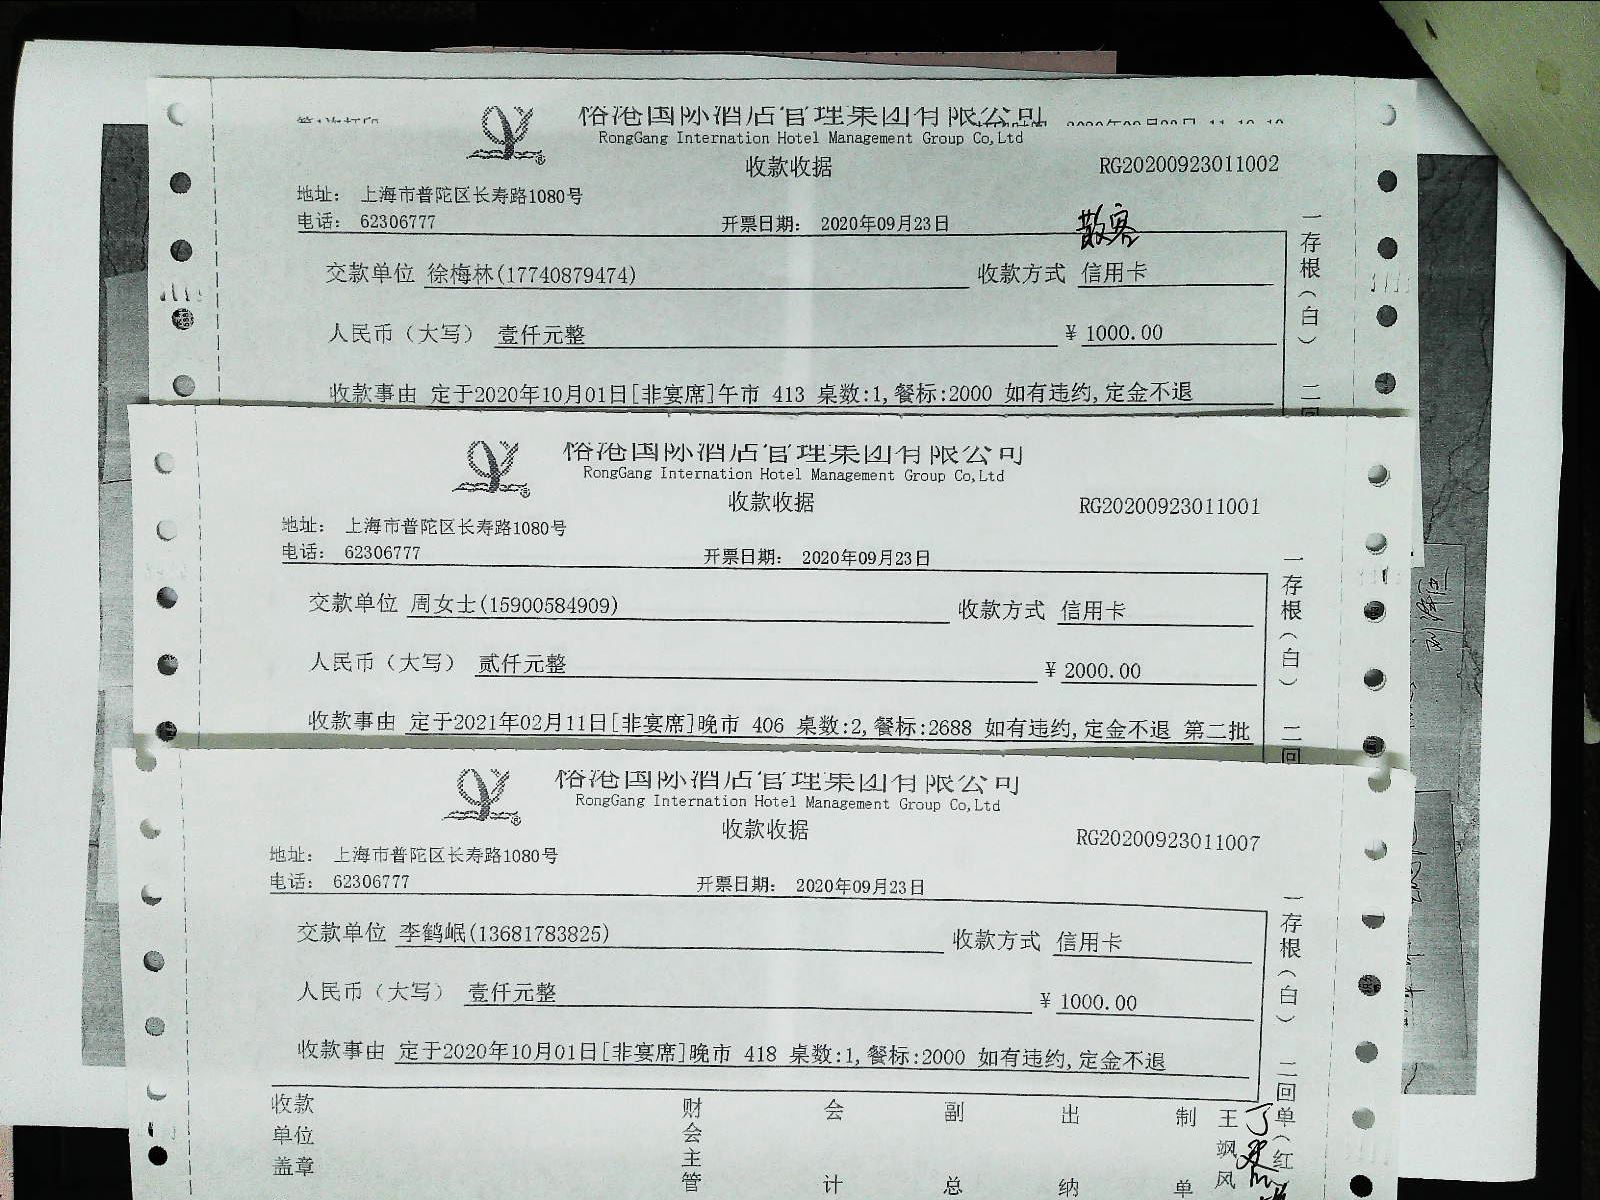 裕港国际酒店管理集团有限公司
RongGang Internation Hotel Management Group Co,Ltd
收款收据 RG20200923011002
地址： 上海市普陀区长寿路1080号
电话： 62306777 开票日期： 2020年09月23日
散客
交款单位 徐梅林(17740879474) 收款方式 信用卡
人民币（大写） 壹仟元整 ¥ 1000.00
收款事由 定于2020年10月01日[非宴席]午市 413 桌数:1,餐标:2000 如有违约,定金不退
一存根（白） 二回
裕港国际酒店管理集团有限公司
RongGang Internation Hotel Management Group Co,Ltd
收款收据 RG20200923011001
地址： 上海市普陀区长寿路1080号
电话： 62306777 开票日期： 2020年09月23日
交款单位 周女士(15900584909) 收款方式 信用卡
人民币（大写） 贰仟元整 ¥ 2000.00
收款事由 定于2021年02月11日[非宴席]晚市 406 桌数:2,餐标:2688 如有违约,定金不退 第二批
一存根（白） 二回
裕港国际酒店管理集团有限公司
RongGang Internation Hotel Management Group Co,Ltd
收款收据 RG20200923011007
地址： 上海市普陀区长寿路1080号
电话： 62306777 开票日期： 2020年09月23日
交款单位 李鹤岷(13681783825) 收款方式 信用卡
人民币（大写） 壹仟元整 ¥ 1000.00
收款事由 定于2020年10月01日[非宴席]晚市 418 桌数:1,餐标:2000 如有违约,定金不退
一存根（白） 二回单（红
收款单位盖章 财会主管 会计 副总 出纳 制单 王飒风